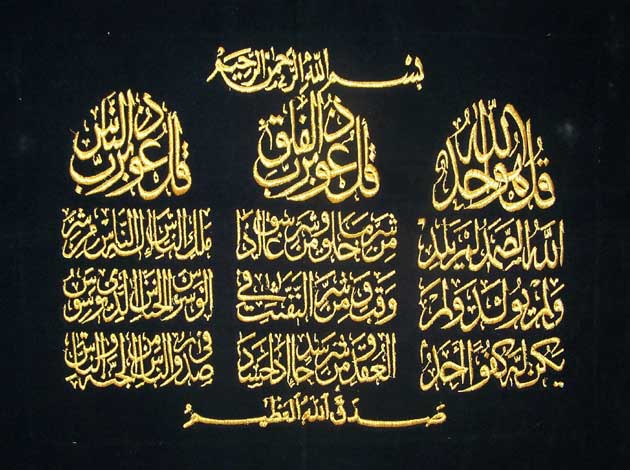 بسم الله الرحمن الرحيم
قل هو الله احد
الله الصمد لم يلد
ولم يولد ولم
يكن له كفوا احد
قل اعوذ برب الفلق
من شر ما خلق ومن شر غاسق اذا
وقب ومن شر النفثت في
العقد ومن شر حاسد اذا حسد
قل اعوذ برب الناس
ملك الناس اله الناس من شر
الوسواس الخناس الذي يوسوس
في صدور الناس من الجنة والناس
صدق الله العظيم